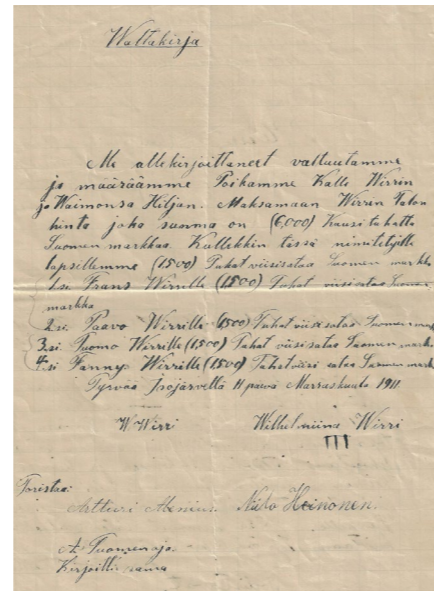 Waltakirja
Me allekirjoittaneet valtuutamme
ja määräämme Poikamme Kalle Wirrin
ja Waimonsa Hiljan. Maksamaan Wirren Talon
hinta joka summa on (6,000) Kuusi tuhatta
Suomen markkaa. Kullekkin tässä nimitetyille
lapsillemme (1500) Tuhat viisisataa Suomen markka
1.si Frans Wirrille (1500) Tuhat viisisataa Suomen
markka
2.si Paavo Wirrille (1500) Tuhat viisisataa Suomen mark
3.si Tuomo Wirrille (1,500) Tuhat viisisataa Suomen mark
4.si Fanny Wirrille (1500) Tuhat viisi sataa Suomen mark
Tyrvää Isojärvellä 11 päivä Marraskuuta 1911
W. Wirri Willulmiina Wirri
III
Toristaa:
Artturi Menius. Niilo Heinonen.
A. Tuomenoja.
Kirjoitti sama